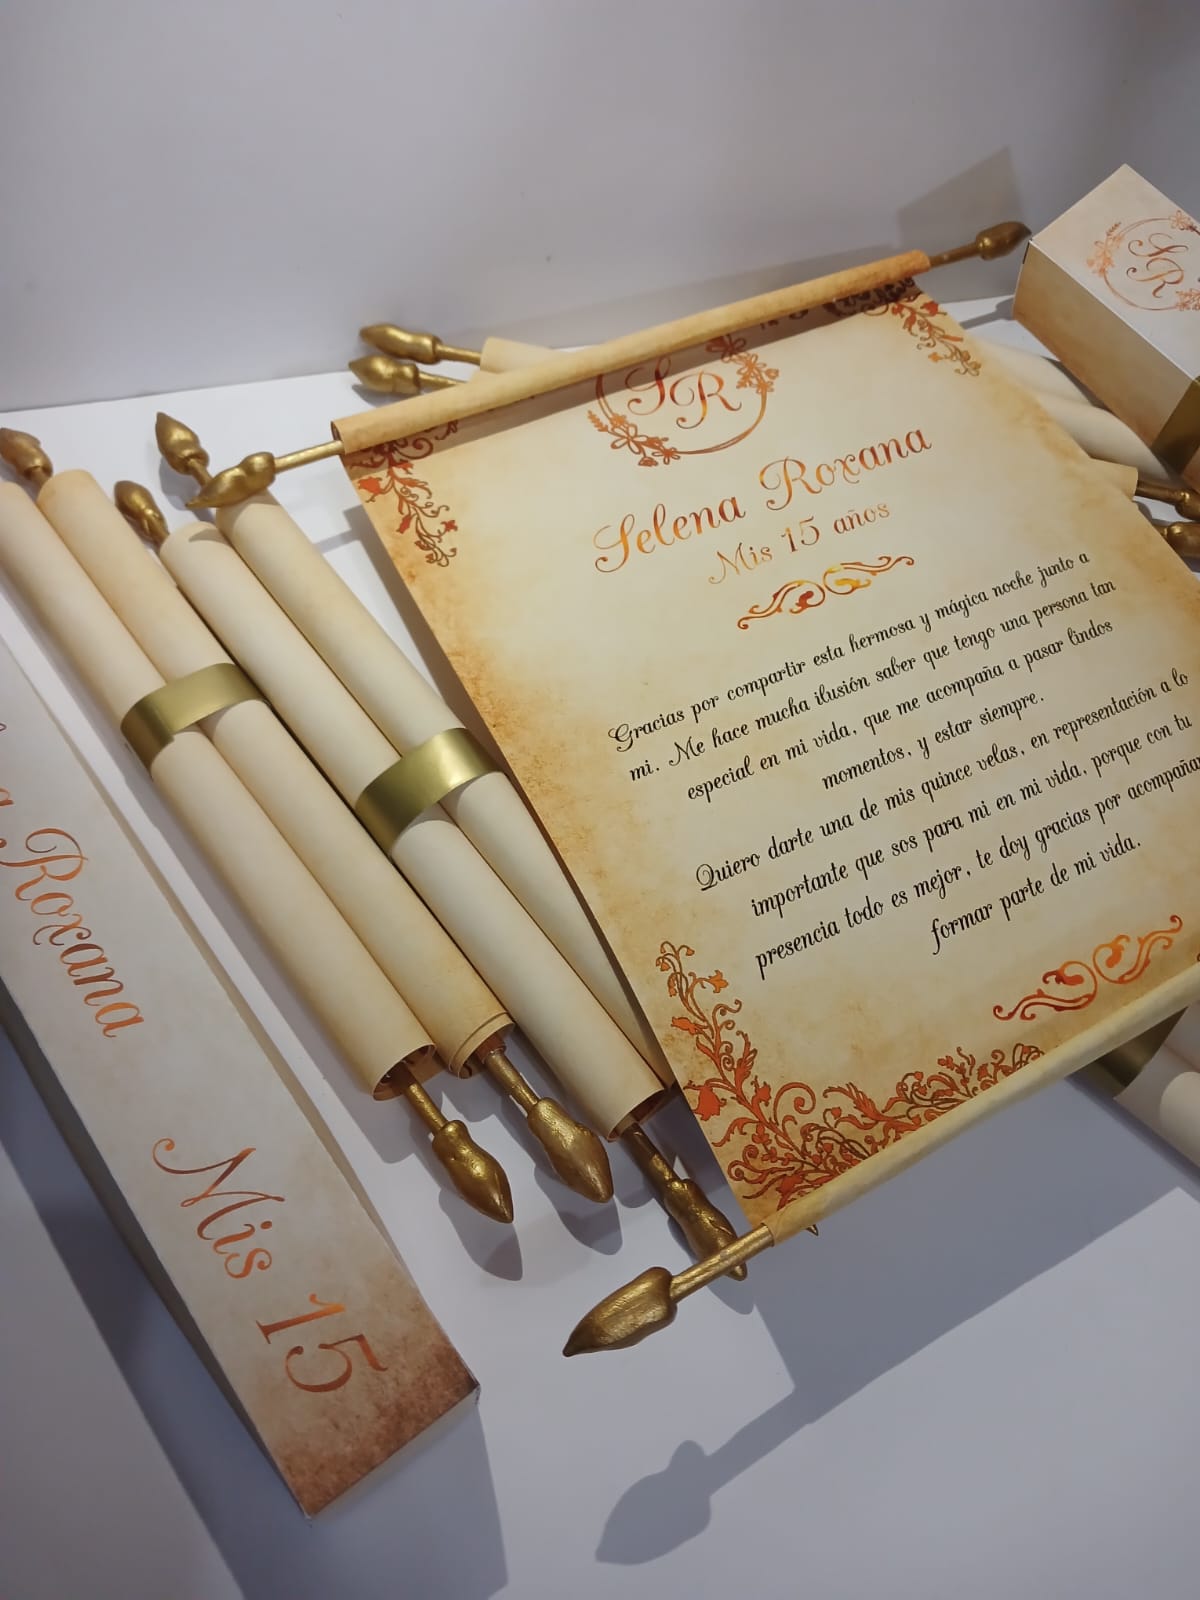 SR
Selena Roxana
Mis 15 años
Gracias por compartir esta hermosa y mágica noche junto a
mi. Me hace mucha ilusión saber que tengo una persona tan
especial en mi vida, que me acompaña a pasar lindos
momentos, y estar siempre.
Quiero darte una de mis quince velas, en representación a lo
importante que sos para mi en mi vida, porque con tu
presencia todo es mejor, te doy gracias por acompañar
formar parte de mi vida.
SR
Roxana
Mis 15